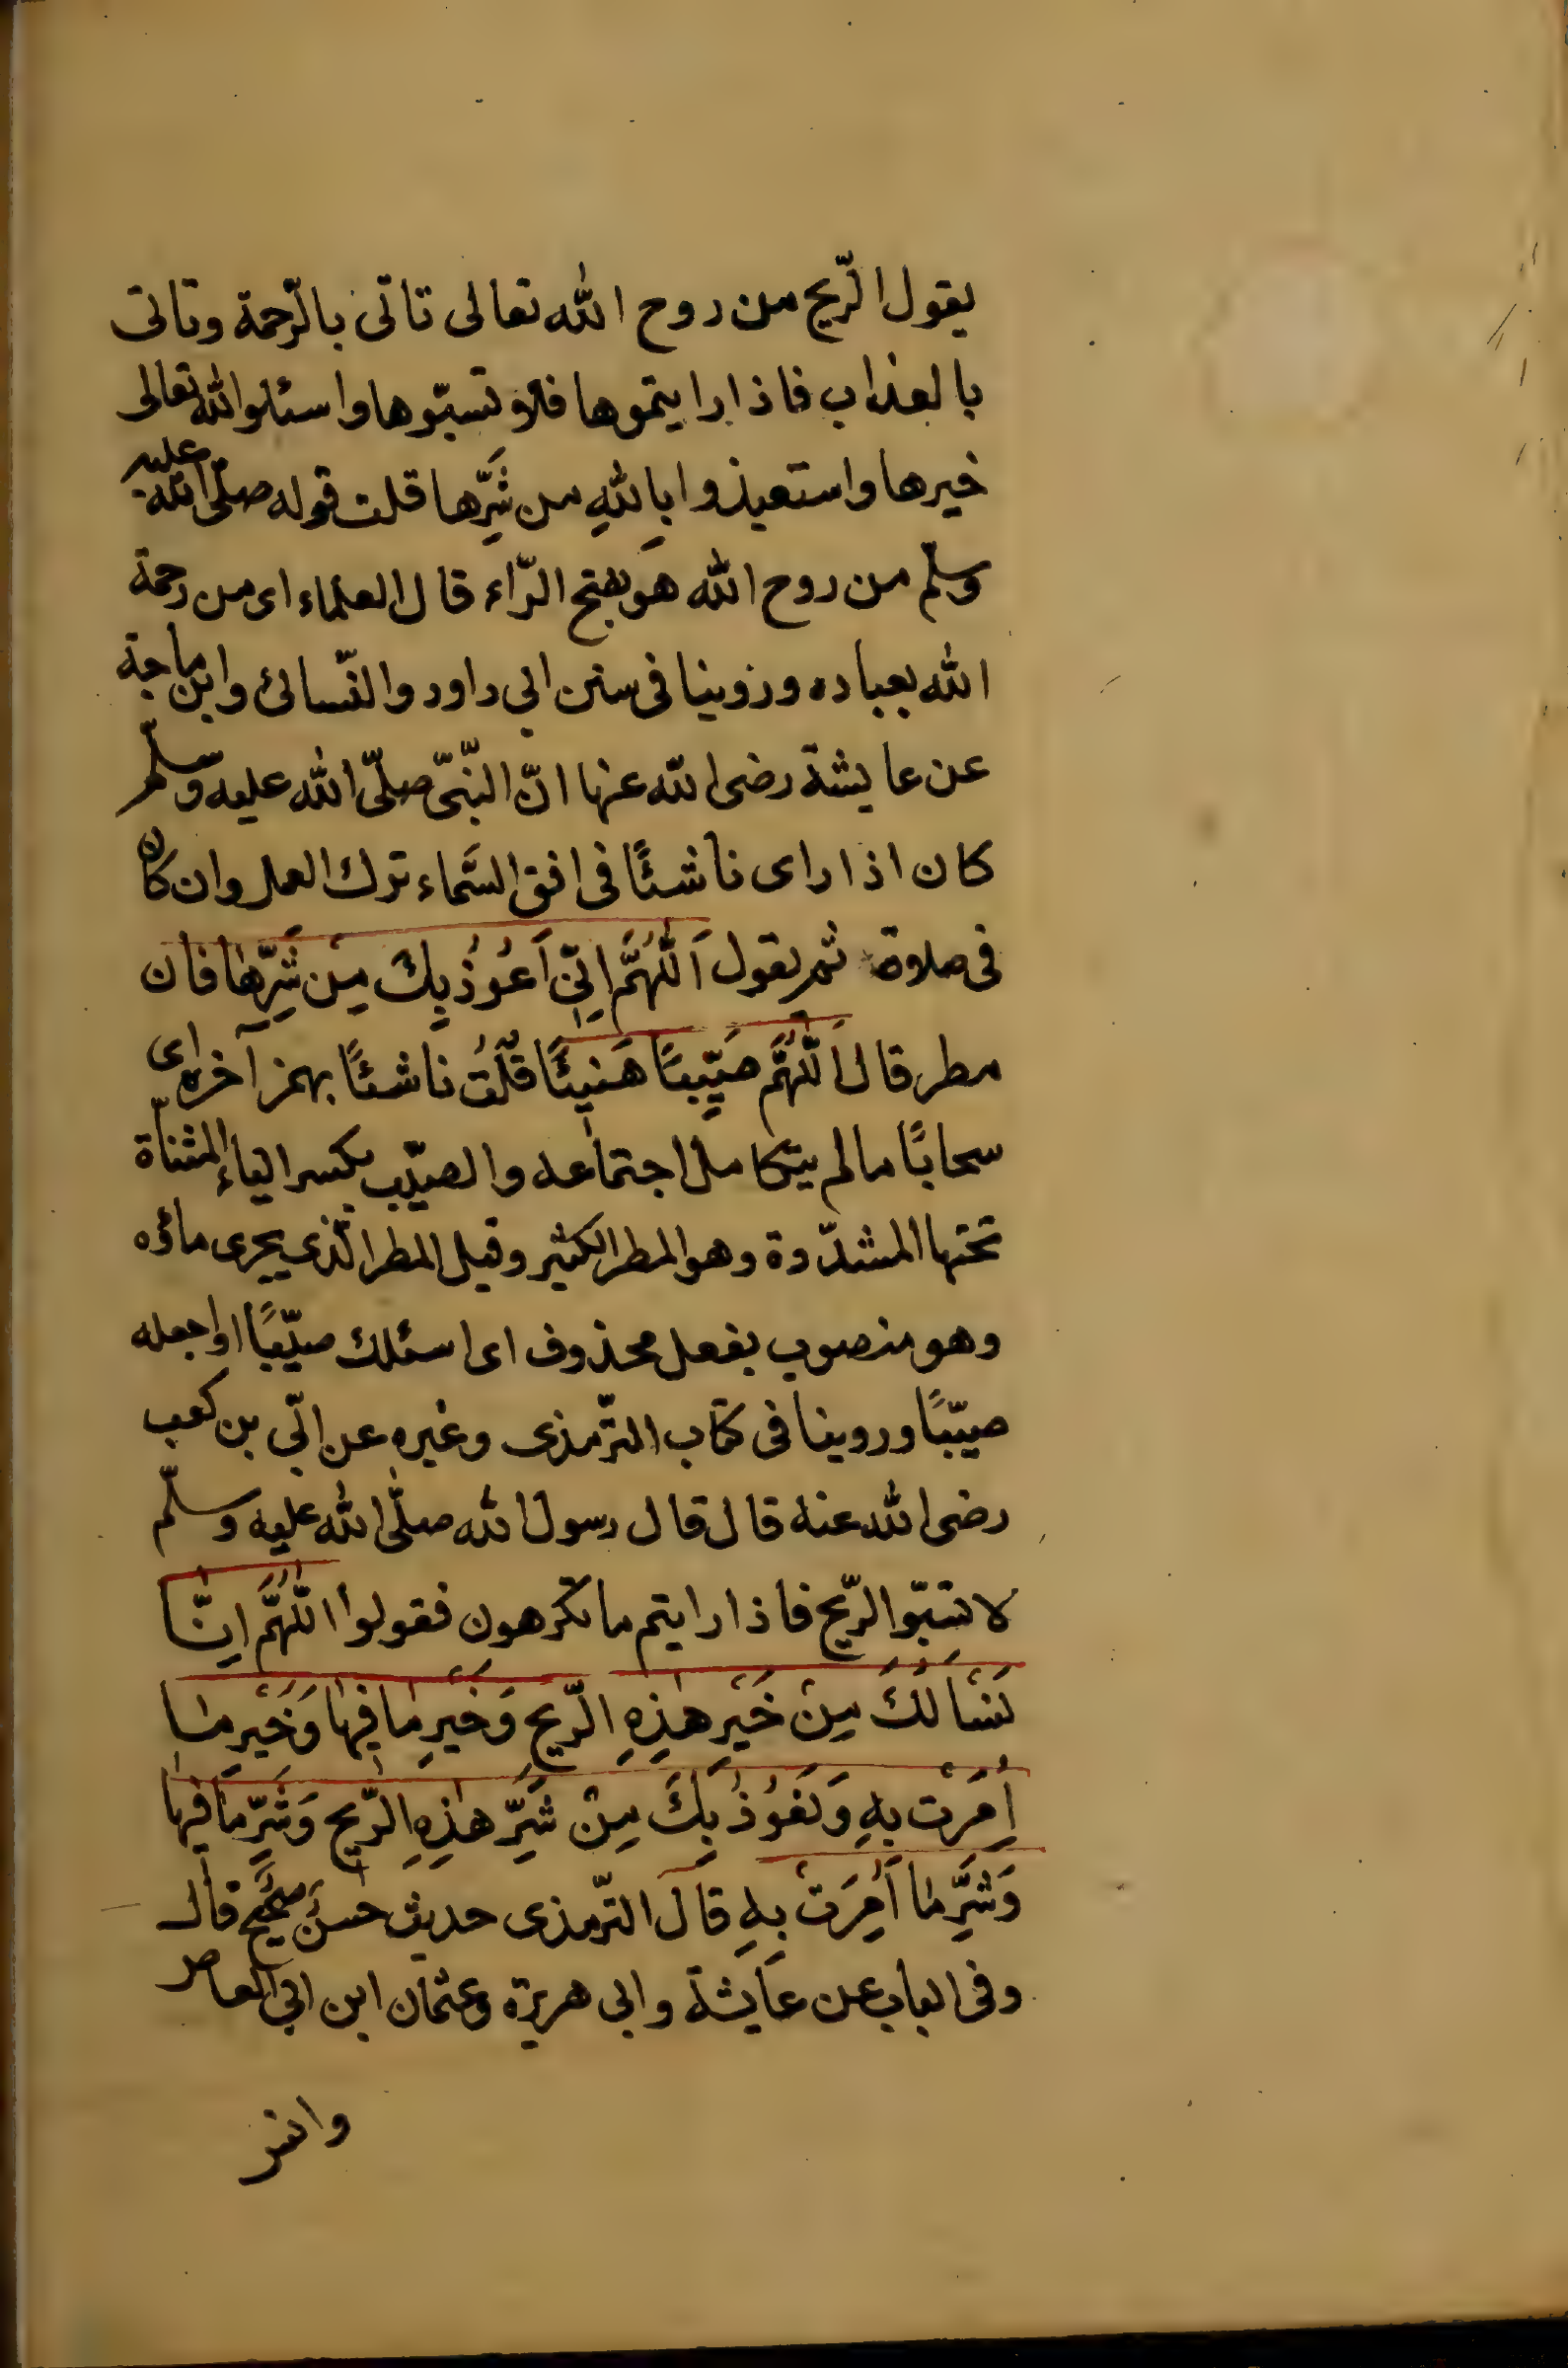 يقول الرّيح من روح الله تعالى تاتى بالرّحمة وتاتى
بالعذاب فاذا رايتموها فلا تسبّوها واسئلوا الله تعالى
خيرها واستعيذوا بِاللهِ من شَرِّها قلت قوله صلّى الله عليه
وسلّم من روح الله هو بفتح الرّاء قال العلماء اى من رحمة
الله بعباده وروينا فى سنن ابي داود والنّسائ وابن ماجة
عن عايشة رضى الله عنها انّ النّبىّ صلّى الله عليه وسلّم
كان اذا راى ناشئًا فى افق السَّماء ترك العمل وان كان
فى صلاة ثم يقول اَللّٰهُمَّ اِنّىِ اَعُوْذُ بِكَ مِنْ شَرِّهٰا فان
مطر قال اَللّٰهُمَّ صَيِّبًا هَنيئًا قُلْتُ ناشئًا بهمز آخره اى
سحابًا مالم يتكامل اجتماعه والصيّب بكسر الياء المثنّاة
تحتها المشدّدة وهو المطر الكثير وقيل المطر الّذى يجرى ماؤه
وهو منصوب بفعل محذوف اى اسئلك صيّبًا او اجعله
صيّبًا وروينا فى كتاب التّرمذى وغيره عن ابّي بن كعب
رضى الله عنه قال قال رسول الله صلّى الله عليه وسلّم
لا تسبّوا الرّيح فاذا رايتم ما تكرهون فقولوا اللّٰهُمَّ اِنّٰا
نَسْاَلُكَ مِنْ خَيْرِ هٰذِهِ الرّيحِ وَخَيْرِ مٰا فيهٰا وَخَيْرِ مٰا
اُمِرَتْ بِهِ وَنَعُوْذُ بِكَ مِنْ شَرِّ هٰذِهِ الرّيحِ وَشَرِّ مٰا فيهٰا
وَشَرِّ مٰا اُمِرَتْ بِهِ قال التّرمذى حديث حسن صحيح قال
وفى الباب عن عايشة وابى هريرة وعثمان ابن ابي العاص
وانس